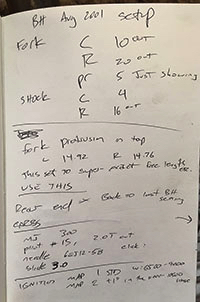 BH Aug 2001 setup
Fork C 10 out
R 20 out
pr 5 Just showing
Shock C 4
R 16 out
fork protrusion on top
L 14.92 R 14.76
This set to super- fork length
USE THIS
Rear end Back to last BH setting
MJ 300
pilot # 15, 2.0T out
needle
slide 3.0
IGNITION MAP 1 STD
MAP 2 +1° in the